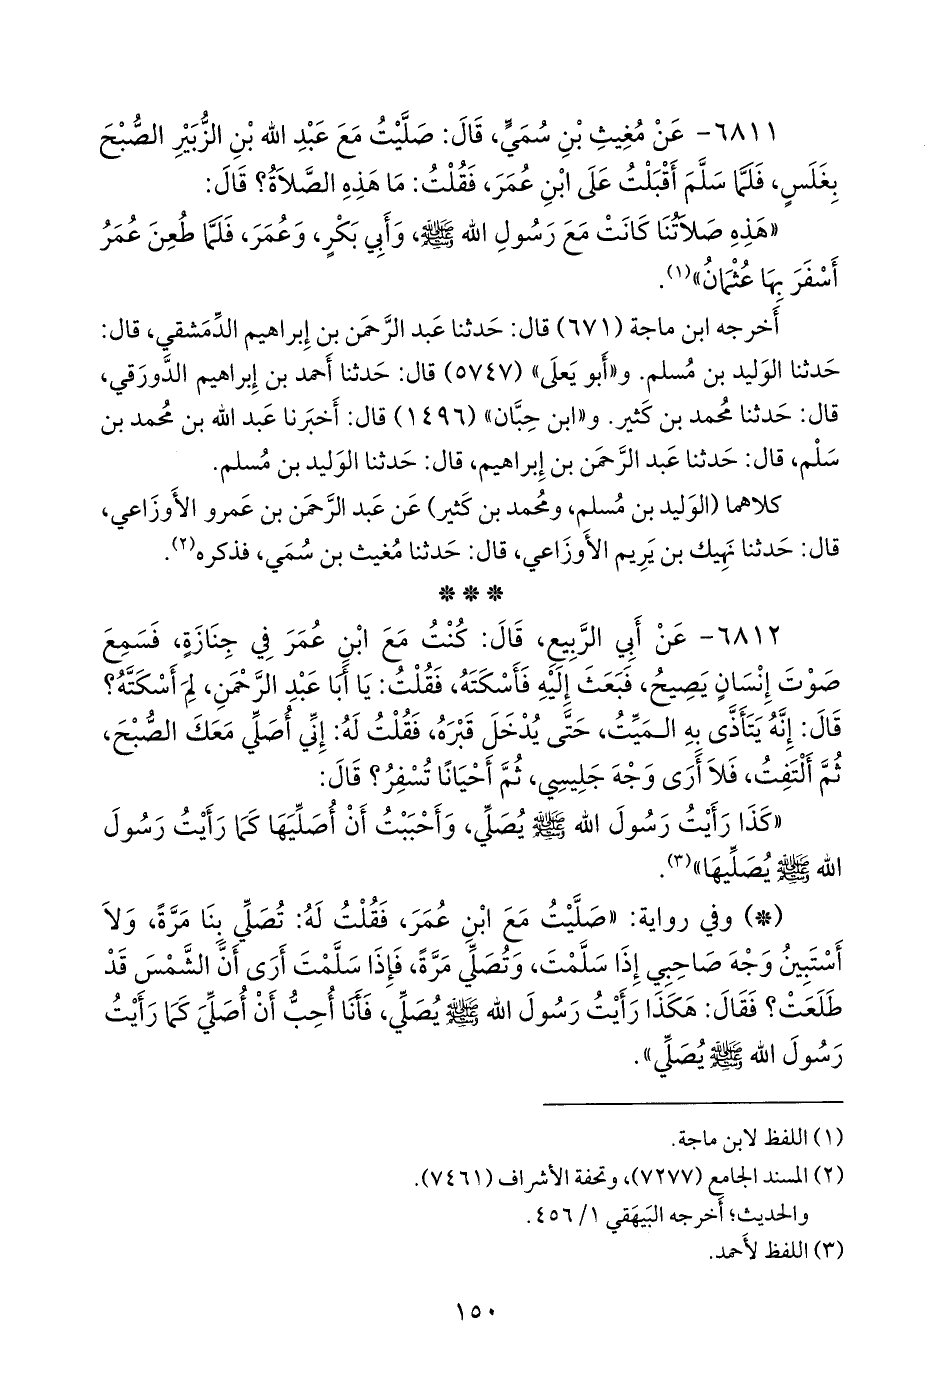 ٦٨١١- عَنْ مُغِيثِ بْنِ سُمَيٍّ، قَالَ: صَلَّيْتُ مَعَ عَبْدِ الله بْنِ الزُّبَيْرِ الصُّبْحَ
بِغَلَسٍ، فَلَمَّا سَلَّمَ أَقْبَلْتُ عَلَى ابْنِ عُمَرَ، فَقُلْتُ: مَا هَذِهِ الصَّلاَةُ؟ قَالَ:
«هَذِهِ صَلاَتُنَا كَانَتْ مَعَ رَسُولِ الله ﷺ، وَأَبِي بَكْرٍ، وَعُمَرَ، فَلَمَّا طُعِنَ عُمَرُ
أَسْفَرَ بِهَا عُثْمَانُ»(١).
أَخرجه ابن ماجة (٦٧١) قال: حَدثنا عَبد الرَّحمَن بن إِبراهيم الدِّمَشقي، قال:
حَدثنا الوَليد بن مُسلم. و«أَبو يَعلَى» (٥٧٤٧) قال: حَدثنا أَحمد بن إِبراهيم الدَّورَقي،
قال: حَدثنا مُحمد بن كَثير. و«ابن حِبَّان» (١٤٩٦) قال: أَخبَرنا عَبد الله بن مُحمد بن
سَلْم، قال: حَدثنا عَبد الرَّحمَن بن إِبراهيم، قال: حَدثنا الوَليد بن مُسلم.
كلاهما (الوَليد بن مُسلم، ومُحمد بن كَثير) عَن عَبد الرَّحمَن بن عَمرو الأَوزَاعي،
قال: حَدثنا نَهيك بن يَريم الأَوزَاعي، قال: حَدثنا مُغيث بن سُمَي، فذكره(٢).
* * *
٦٨١٢- عَنْ أَبِي الرَّبِيعِ، قَالَ: كُنْتُ مَعَ ابْنِ عُمَرَ فِي جِنَازَةٍ، فَسَمِعَ
صَوْتَ إِنْسَانٍ يَصِيحُ، فَبَعَثَ إِلَيْهِ فَأَسْكَتَهُ، فَقُلْتُ: يَا أَبَا عَبْدِ الرَّحْمَنِ، لِمَ أَسْكَتَّهُ؟
قَالَ: إِنَّهُ يَتَأَذَّى بِهِ الـمَيِّتُ، حَتَّى يُدْخَلَ قَبْرَهُ، فَقُلْتُ لَهُ: إِنِّي أُصَلِّي مَعَكَ الصُّبْحَ،
ثُمَّ أَلْتَفِتُ، فَلاَ أَرَى وَجْهَ جَلِيسِي، ثُمَّ أَحْيَانًا تُسْفِرُ؟ قَالَ:
«كَذَا رَأَيْتُ رَسُولَ الله ﷺ يُصَلِّي، وَأَحْبَبْتُ أَنْ أُصَلِّيَهَا كَمَا رَأَيْتُ رَسُولَ
الله ﷺ يُصَلِّيهَا»(٣).
(*) وفي رواية: «صَلَّيْتُ مَعَ ابْنِ عُمَرَ، فَقُلْتُ لَهُ: تُصَلِّي بِنَا مَرَّةً، وَلاَ
أَسْتَبِينُ وَجْهَ صَاحِبِي إِذَا سَلَّمْتَ، وَتُصَلِّي مَرَّةً، فَإِذَا سَلَّمْتَ أَرَى أَنَّ الشَّمْسَ قَدْ
طَلَعَتْ؟ فَقَالَ: هَكَذَا رَأَيْتُ رَسُولَ الله ﷺ يُصَلِّي، فَأَنَا أُحِبُّ أَنْ أُصَلِّيَ كَمَا رَأَيْتُ
رَسُولَ الله ﷺ يُصَلِّي».
(١) اللفظ لابن ماجة.
(٢) المسند الجامع (٧٢٧٧)، وتحفة الأشراف (٧٤٦١).
والحديث؛ أَخرجه البَيهَقي ١/ ٤٥٦.
(٣) اللفظ لأَحمد.
١٥٠